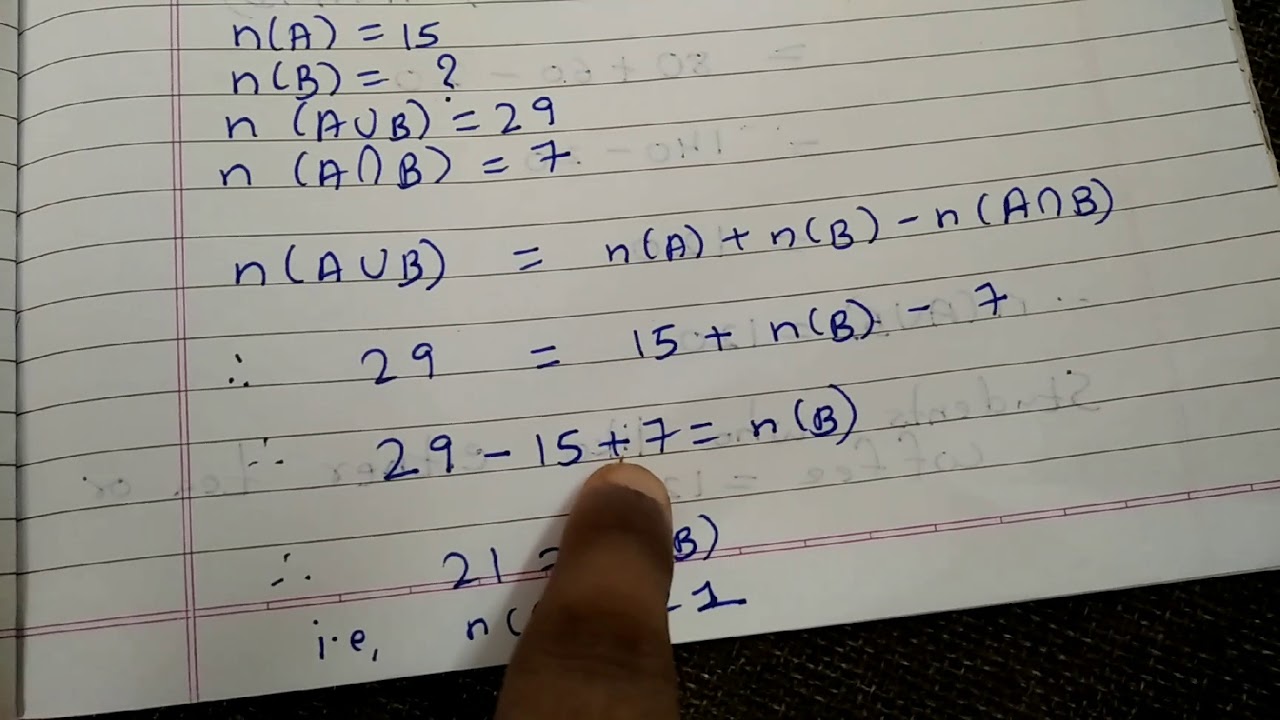 n(A) = 15
n(B) = ?
n (A∪B) = 29
n (A∩B) = 7.
n(A∪B) = n(A) + n(B) - n(A∩B)
∴ 29 = 15 + n(B) - 7
∴ 29 - 15 + 7 = n(B)
∴ 21 = B)
i.e, n( 1